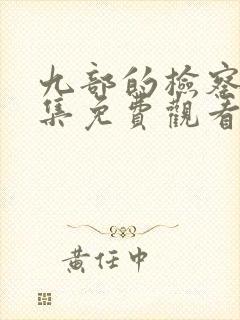 九部的檢察
集免費觀看
黃任中